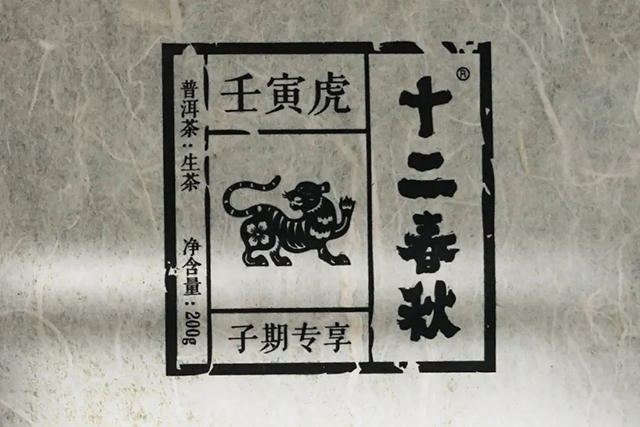 十二春秋®
壬寅虎
子期专享
普洱茶:生茶
净含量:200g